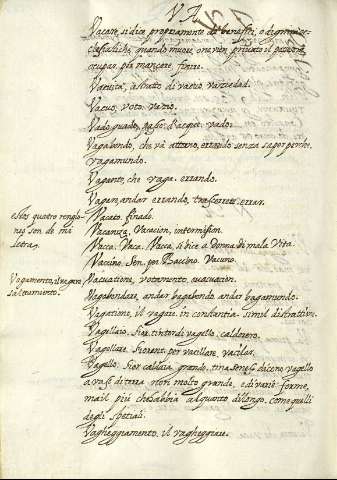 VA
Vacare, si dice propriamente de beneficj, o dignità ec-
clesiastiche, quando muore, o ne vien privato il patrone
mancare, finire.
Vacuità, astratto di vacuo
Vacuo, voto. vazio.
Vado guado, passo d'acque. vado.
Vagabondo, che và attorno, errando senza saper perche.
vagamundo.
Vagante, che vaga. errando.
Vagar, andar errando, trascorrere. errar.
Vacato. finado.
Vacanza, Vacacion, intermission.
Vacca. Vaca. Vacca, si dice a Donna di mala Vita.
Vaccino. Sen. per Baccino. Vacuno.
Vacuatione, votamento. evacuacion.
Vagabondare, andar vagabondo. andar bagamundo.
Vagatione, il vagare. inconstantia. simil distrattion.
Vagellaio. Fior. tintor di vagello, calderero.
Vagellare. Fiorent. per vacillare, vacilar.
Vagello. Fior. caldaia, grande, tina. Senesi dicono vagello
a vasi di terra non molto grande, e di varie forme,
ma il più che habbia alquanto di longo, come quelli
degli spetiali.
Vagheggiamento, il vagheggiare.
estos quatro renglo-
nes son de mi
letra.
Vagamento, il vagare